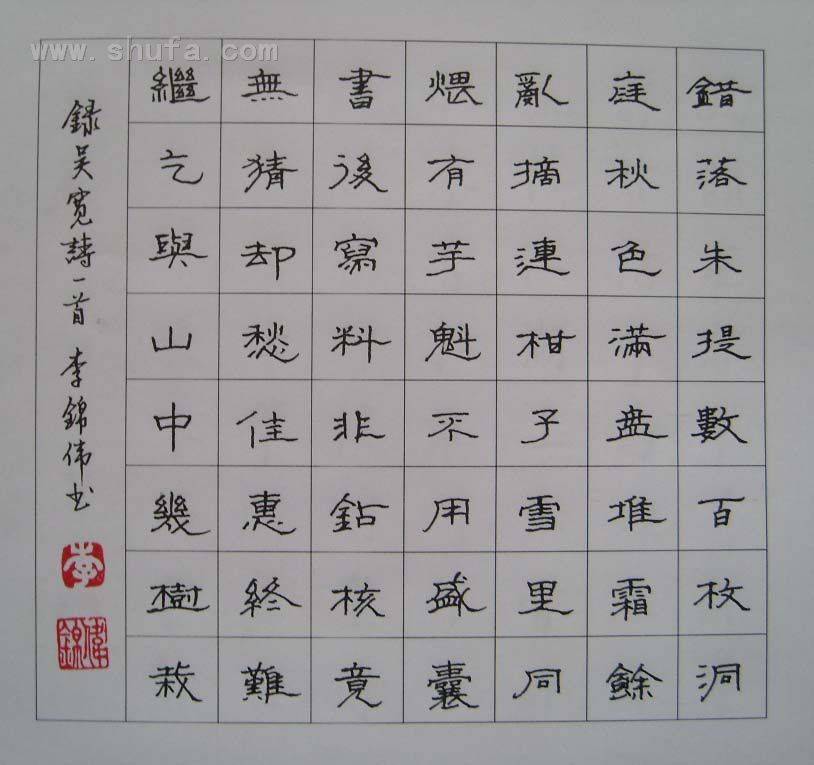 www.shufa.com
錯落朱提數百枚洞
庭秋色滿盘堆霜餘
亂摘連柑子雪里同
煨有芋魁不用盛囊
書後寫料非鉆核竟
無猜却愁佳惠終難
繼乞與山中幾樹栽
録吴寬詩一首 李錦伟书
李
錦偉